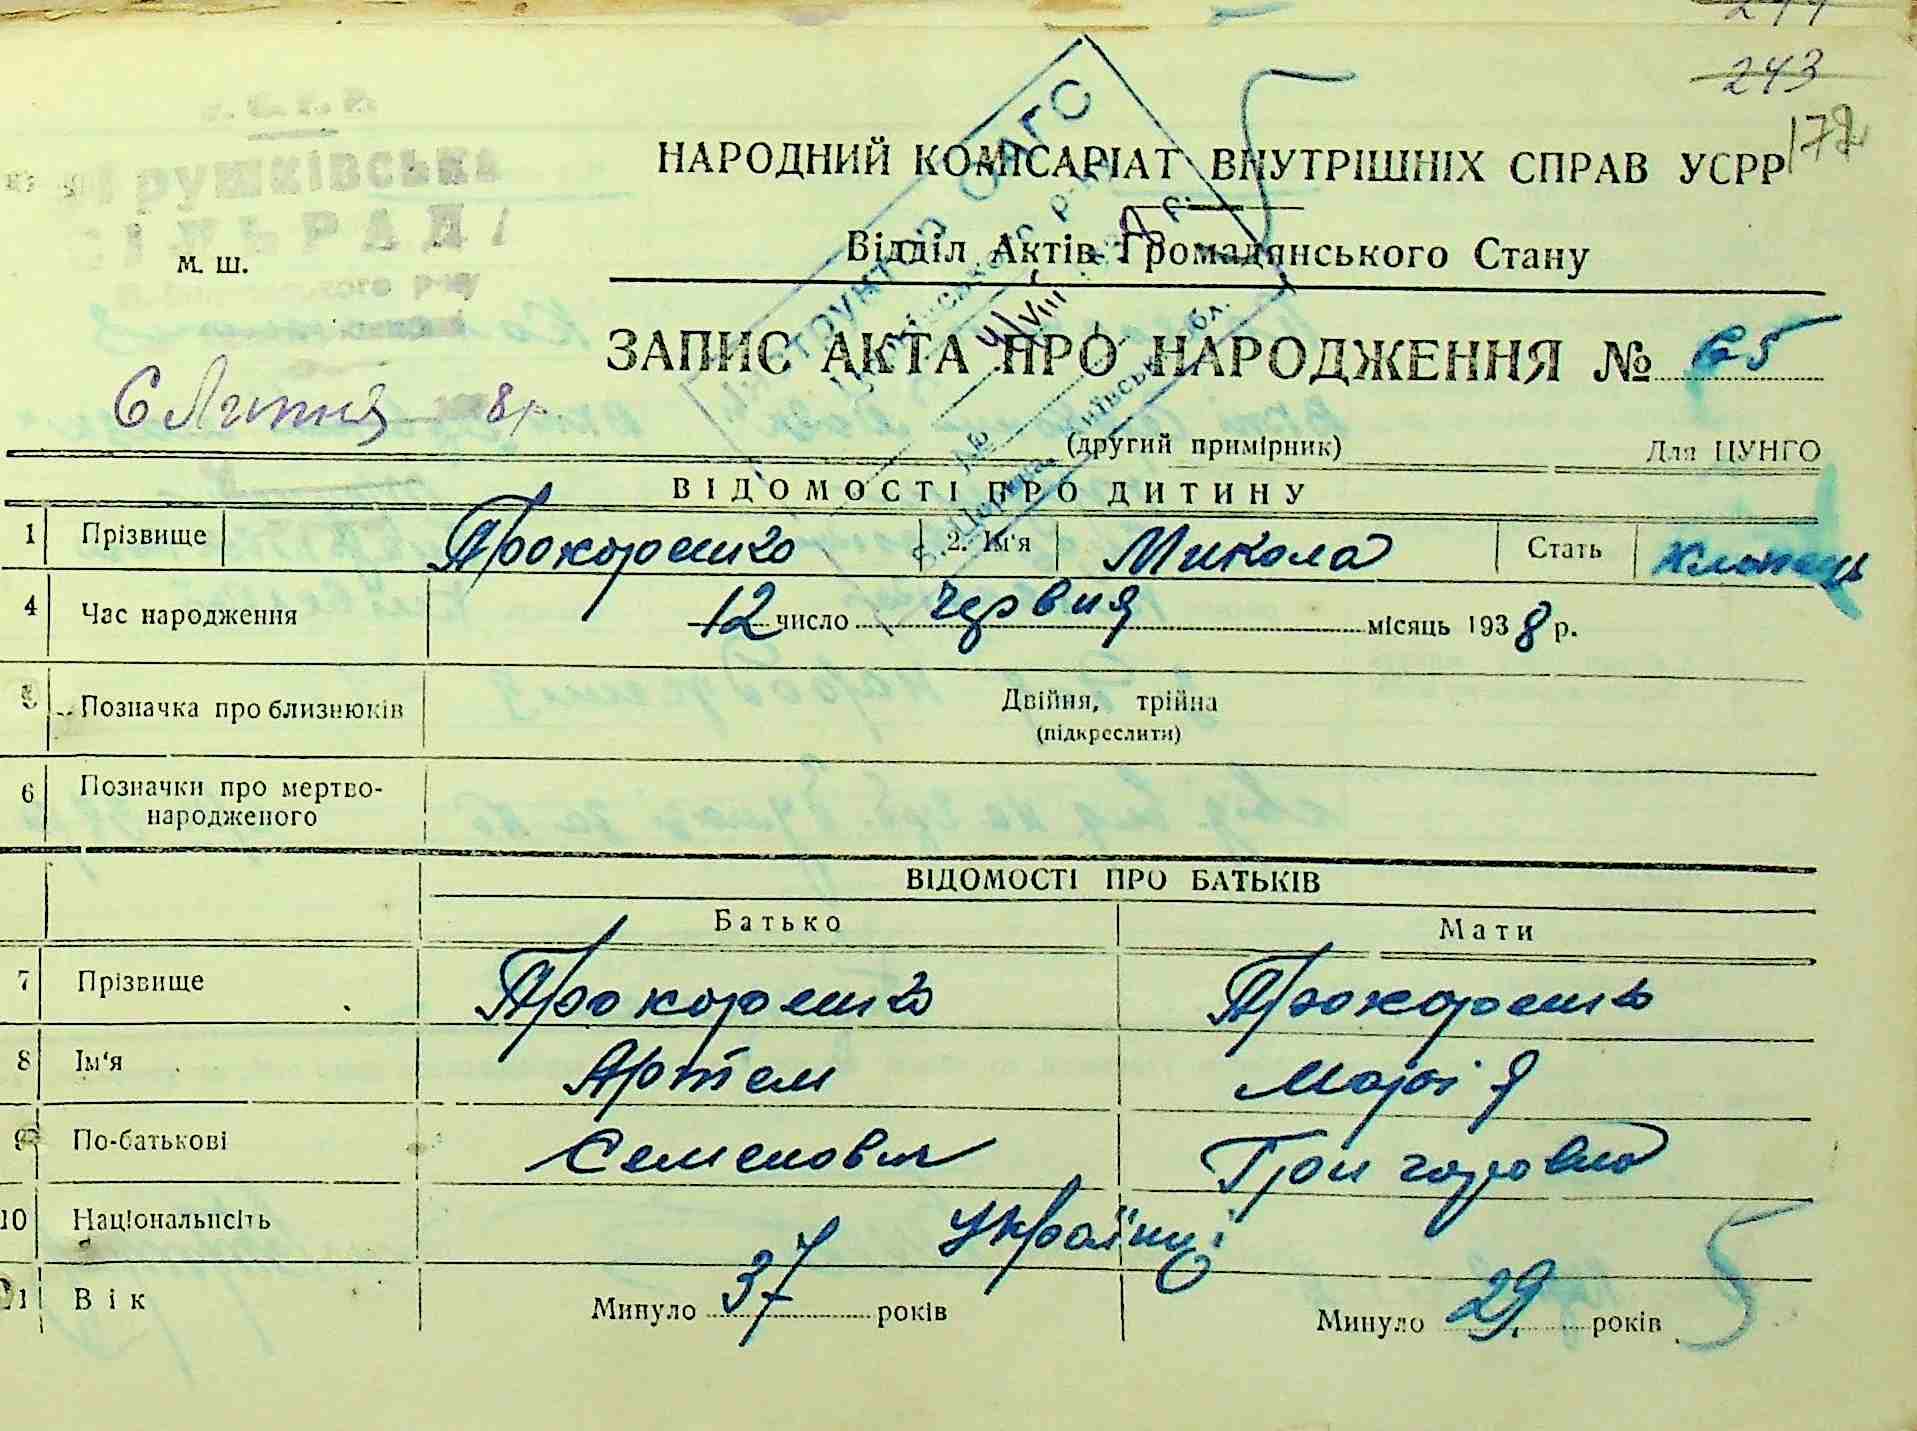 243
172
НАРОДНИЙ КОМІСАРІАТ ВНУТРІШНІХ СПРАВ УСРР
Відділ Актів Громадянського Стану
СІЛЬРАДА
М. Ш.
ЗАПИС АКТА ПРО НАРОДЖЕННЯ № 65
6 Липня 8 р.
(другий примірник) Для ЦУНГО
ВІДОМОСТІ ПРО ДИТИНУ
1 Прізвище Прокоренко 2. Ім'я Микола Стать хлопець
4 Час народження 12 число червня місяць 1938 р.
5 Позначка про близнюків Двійня, трійна
(підкреслити)
6 Позначки про мертво-
народженого
ВІДОМОСТІ ПРО БАТЬКІВ
Батько Мати
7 Прізвище Прокоренко Прокоренко
8 Ім'я Артем Марія
9 По-батькові Семенович Григоровна
10 Національність Українці
11 Вік Минуло 37 років Минуло 29 років